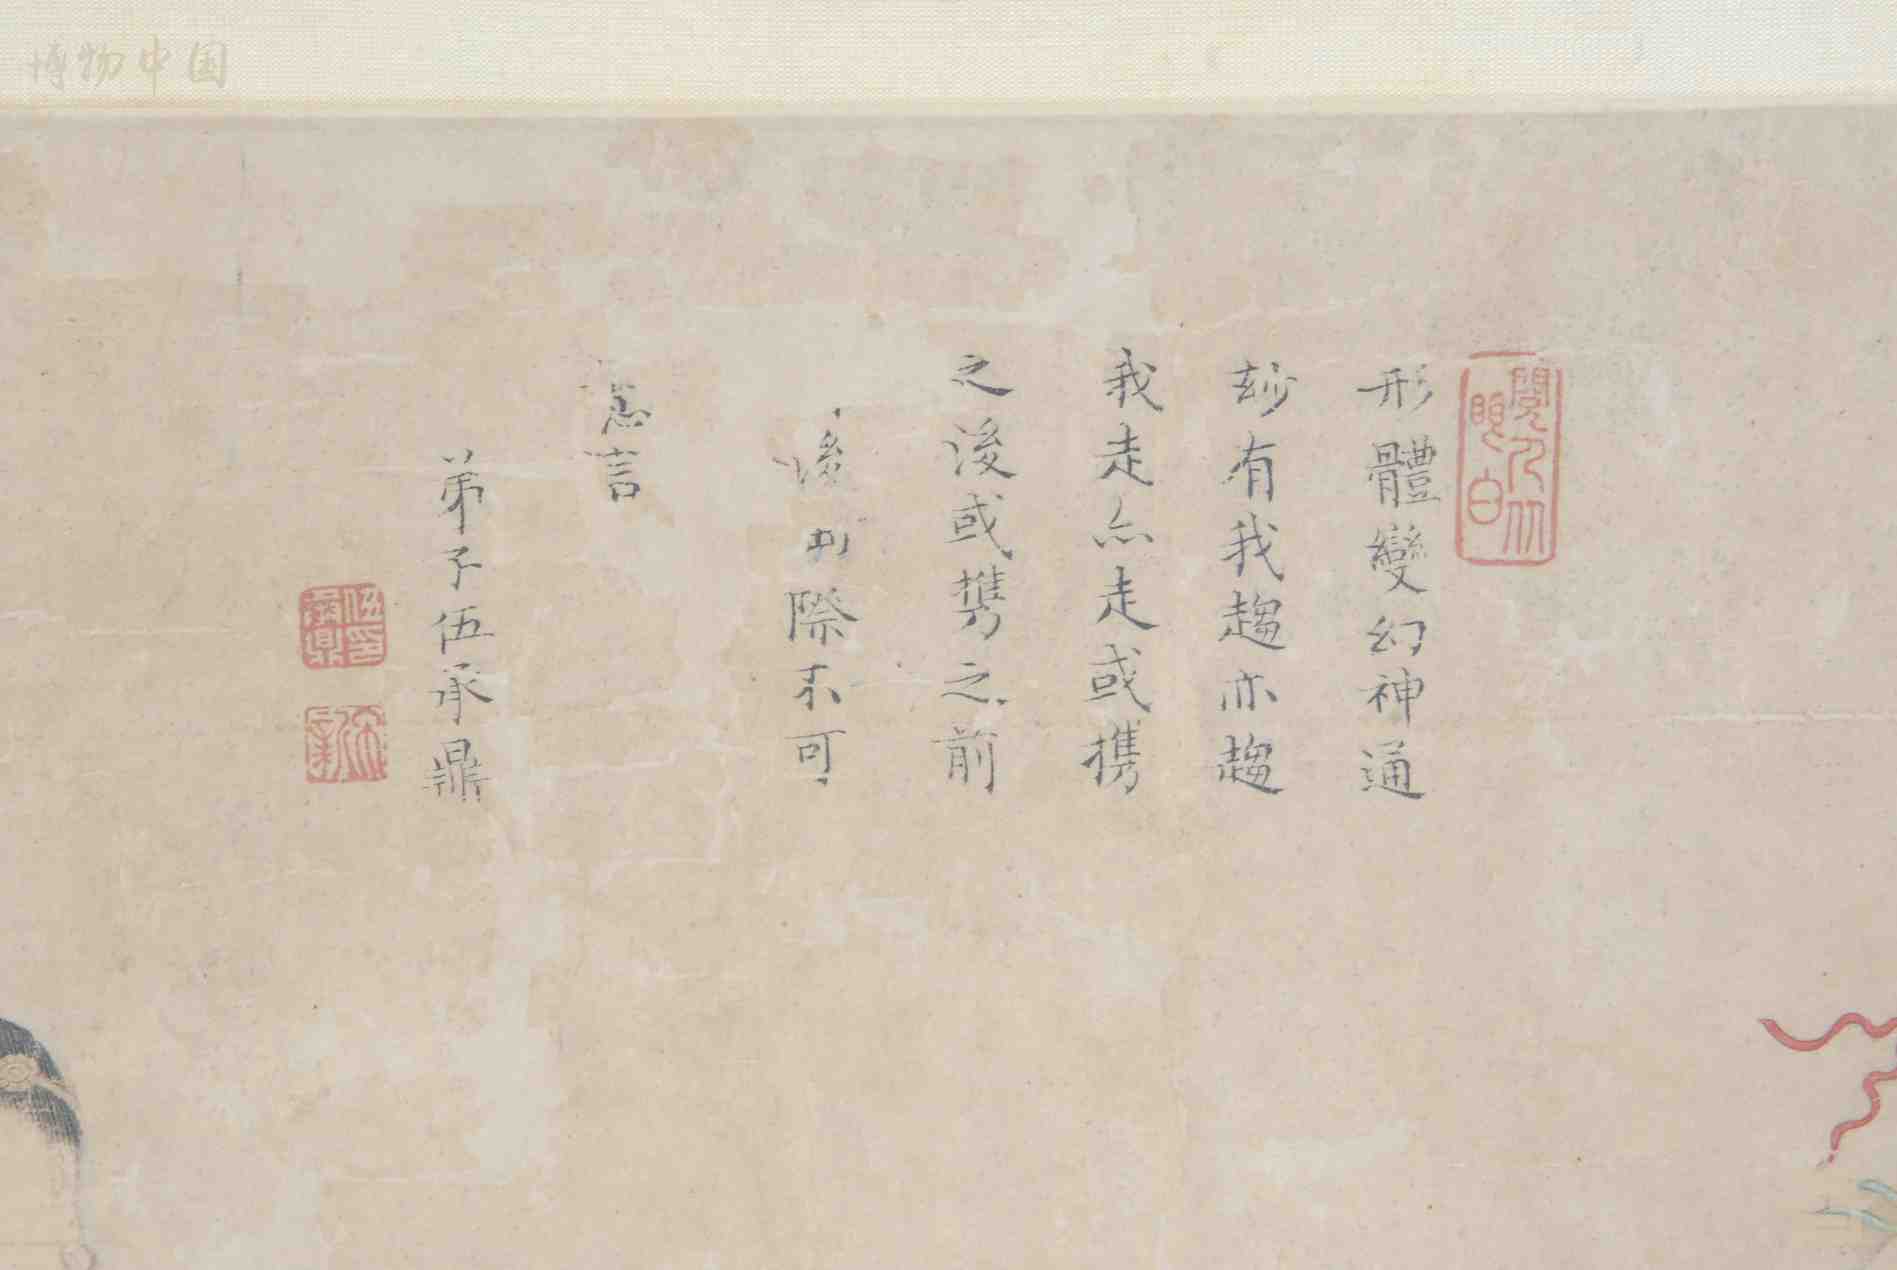 形體變幻神通
玅有我趨亦趨
我走亦走或携
之後或携之前
後 際不可
言
弟子伍承鼎
博物中国